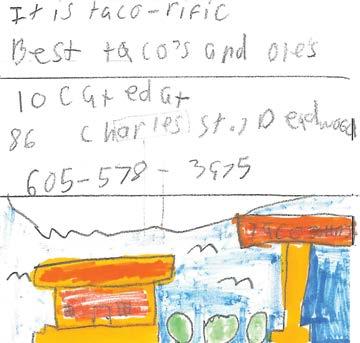 It is taco-rific
Best taco's and ore's
10CatedAt
86 Charles St., Deadwood
605-578-3975